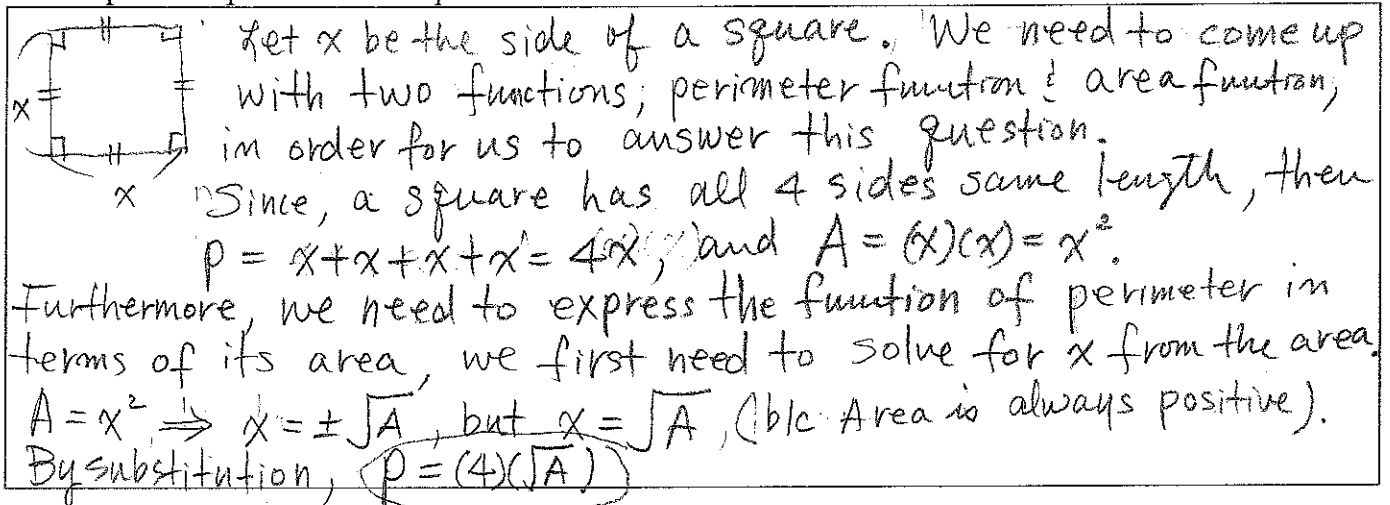 x
x
Let x be the side of a square. We need to come up
with two functions, perimeter function & area function,
in order for us to answer this question.
Since, a square has all 4 sides same length, then
P = x+x+x+x = 4x, and A = (x)(x) = x².
Furthermore, we need to express the function of perimeter in
terms of its area, we first need to solve for x from the area.
A = x² ⇒ x = ±√A, but x = √A, (b/c Area is always positive).
By substitution, P = (4)(√A)